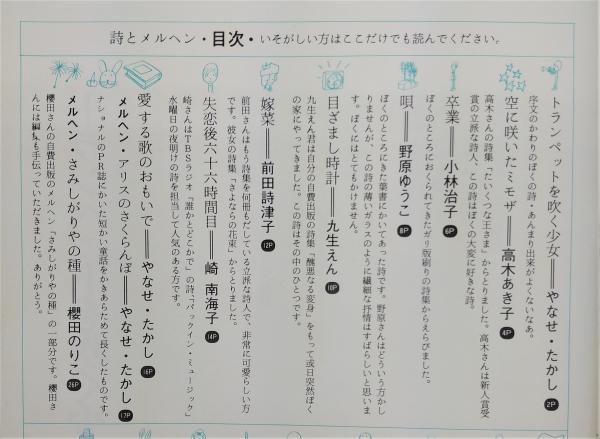 詩とメルヘン・目次・いそがしい方はここだけでも読んでください。
トランペットを吹く少女══やなせ・たかし 2P
序文のかわりのぼくの詩・あんまり出来がよくないなあ。
空に咲いたミモザ══高木あき子 4P
高木さんの詩集「たいくつな王さま」からとりました。高木さんは新人賞受
賞の立派な詩人、この詩はぼくの大変に好きな詩。
卒業══小林治子 6P
ぼくのところにおくられてきたガリ版刷りの詩集からえらびました。
唄══野原ゆうこ 8P
ぼくのところにきた葉書にかいてあった詩です。野原さんはどういう方かし
りませんが、この詩の薄いガラスのように繊細な抒情はすばらしいと思いま
す。ぼくにはとてもかけません。
目ざまし時計══九生えん 10P
九生えん君は自分の自費出版の詩集「醜悪なる変身」をもって或日突然ぼく
の家にやってきました。この詩はその中のひとつです。
嫁菜══前田詩津子 12P
前田さんはもう詩集を何冊もだしている立派な詩人で、非常に可愛らしい方
です。彼女の詩集「さよならの花束」からとりました。
失恋後六十六時間目══崎南海子 14P
崎さんはTBSラジオ「誰かとどこかで」の詩、「パックイン・ミュージック」
水曜日の夜明けの詩を担当して人気のある方です。
愛する歌のおもいで══やなせ・たかし 16P
メルヘン・アリスのさくらんぼ══やなせ・たかし 17P
ナショナルのPR誌にかいた短かい童話をかきあらためて長くしたものです。
メルヘン・さみしがりやの種══櫻田のりこ 26P
櫻田さんの自費出版のメルヘン「さみしがりやの種」の一部分です。櫻田さ
んには編集も手伝っていただきました。ありがとう。